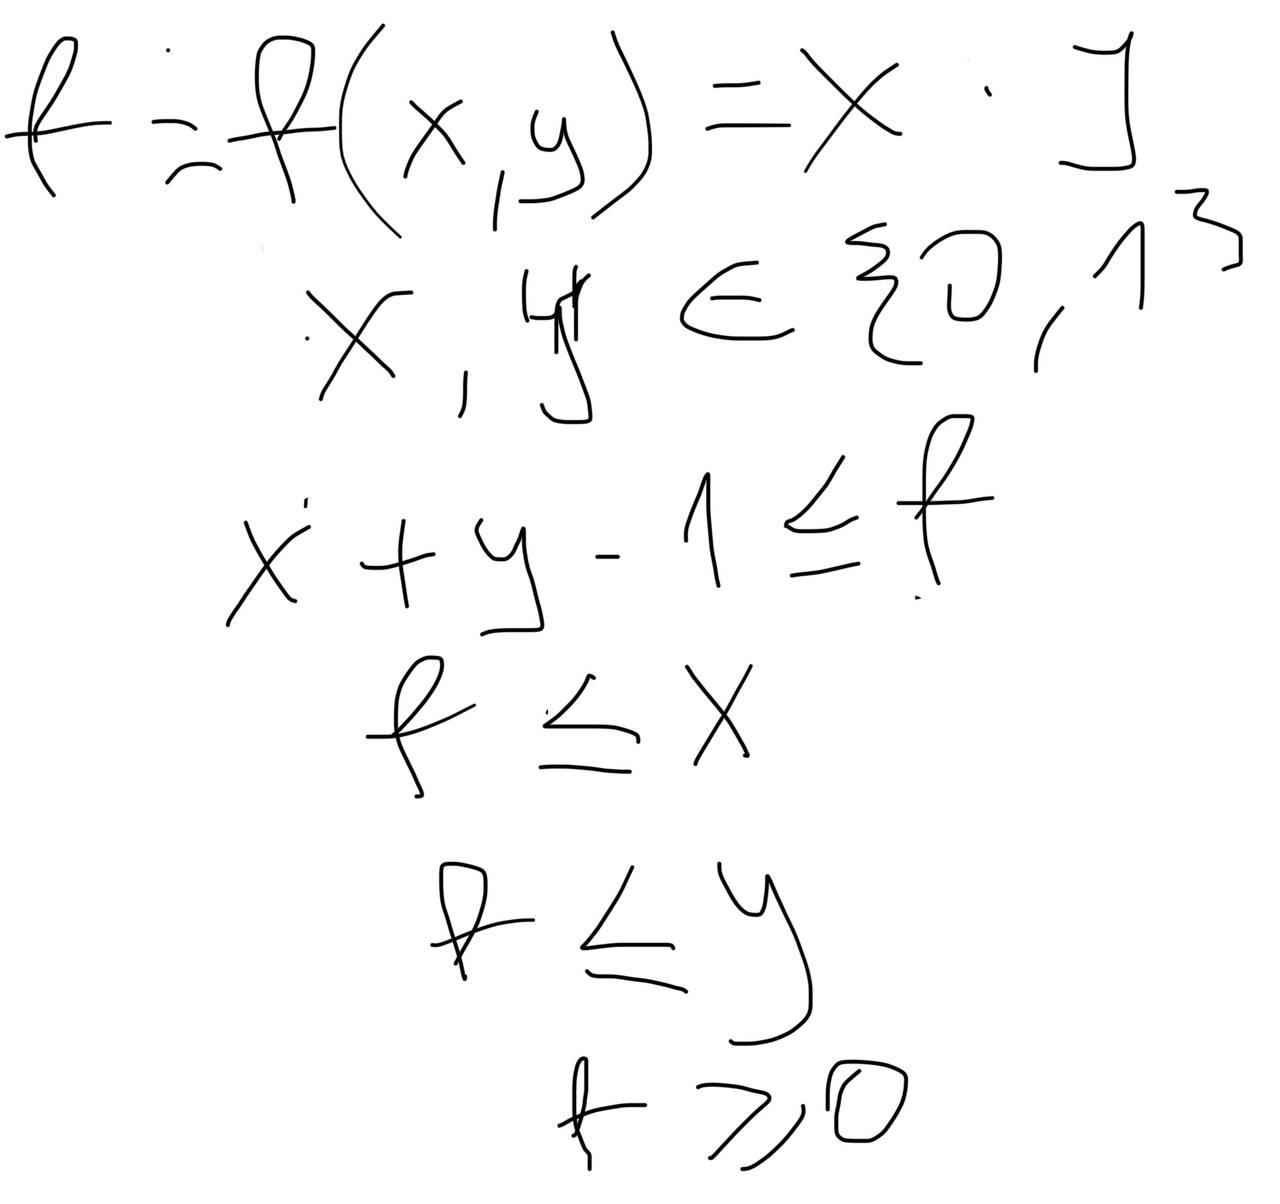 f = f(x, y) = x · y
x, y ∈ {0, 1}
x + y - 1 ≤ f
f ≤ x
f ≤ y
f ≥ 0